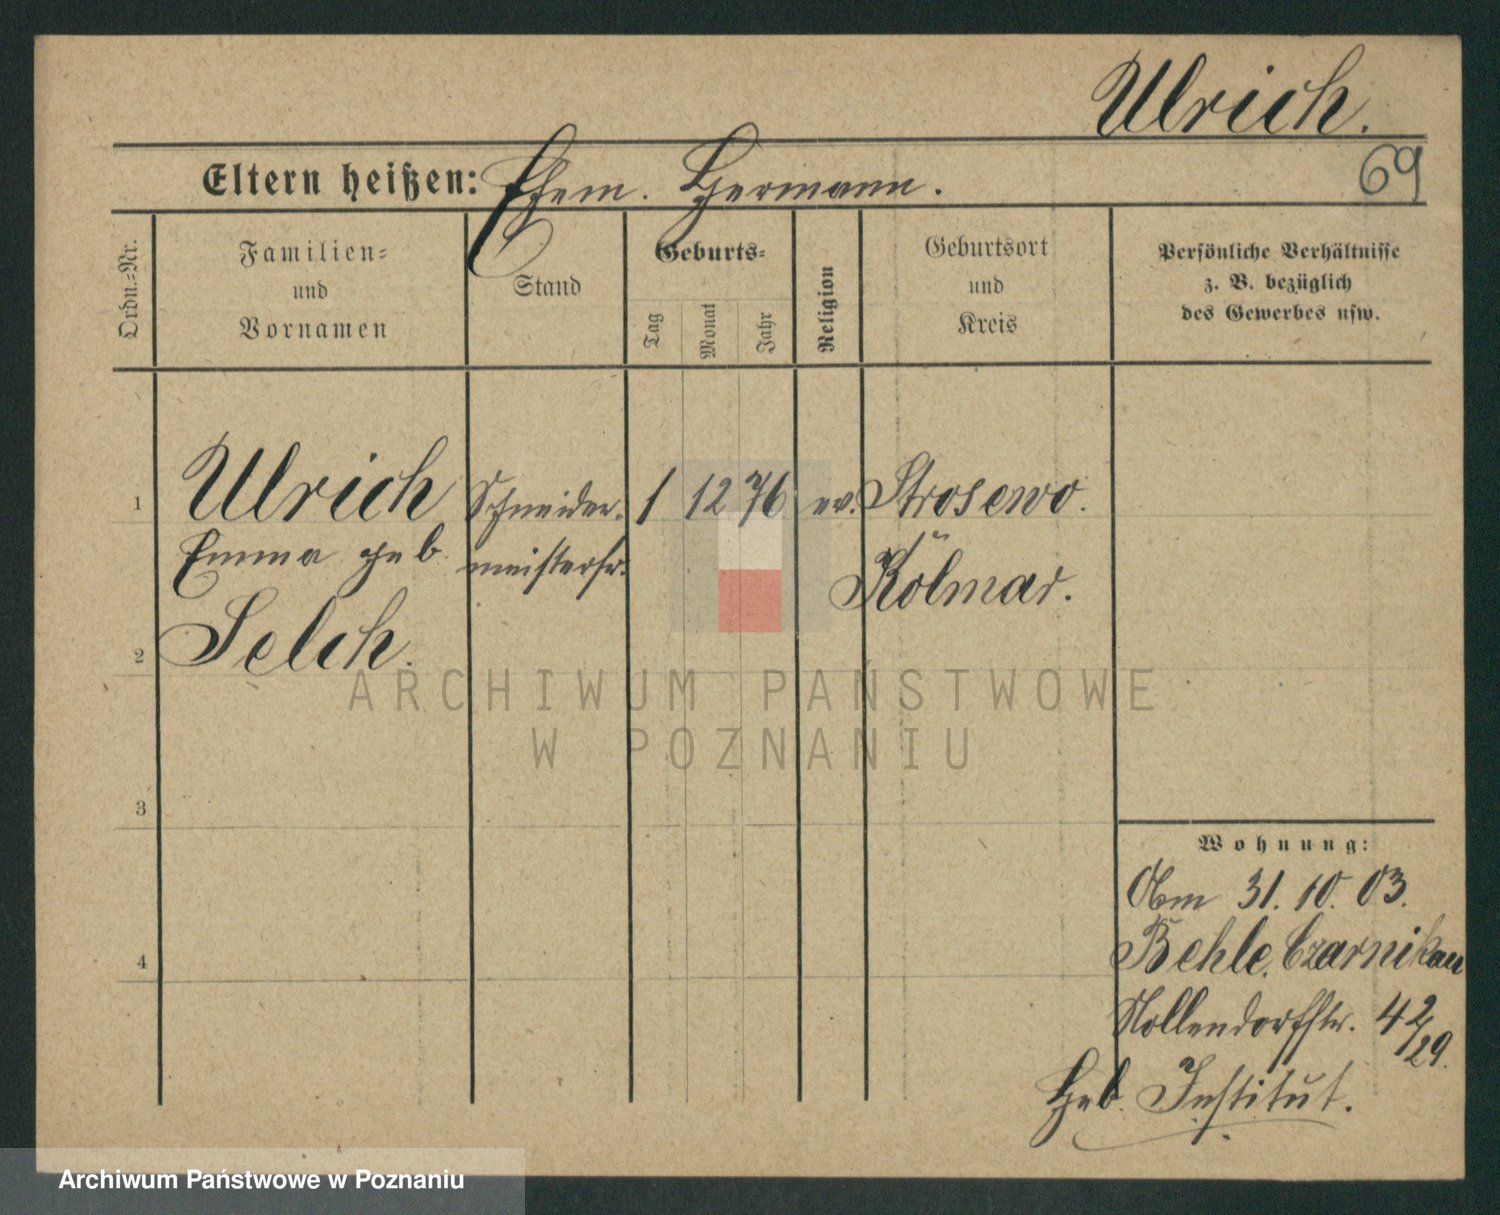 Ulrich.
69
Eltern heißen: Ehem. Hermann.
Ordn.-Nr.
Familien-
und
Vornamen
Stand
Geburts-
Tag
Monat
Jahr
Religion
Geburtsort
und
Kreis
Persönliche Verhältnisse
z. B. bezüglich
des Gewerbes usw.
1
Ulrich Schneider- 1 12 76 ev. Strosewo.
Emma geb. meisterfr. Kolmar.
Selch.
2
ARCHIWUM PAŃSTWOWE
W POZNANIU
3
4
Wohnung:
31. 10. 03.
Behle, Czarnikau
Nollendorfstr. 42/29.
Geb. Institut.
Archiwum Państwowe w Poznaniu